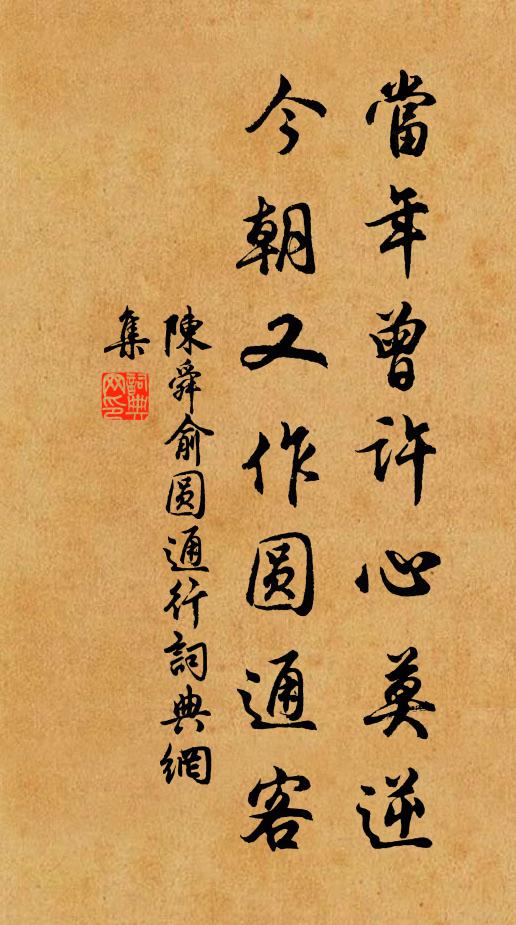 當年曾許心莫逆
今朝又作圓通客
陳舜俞圓通行詞典網
集
詞典
网印